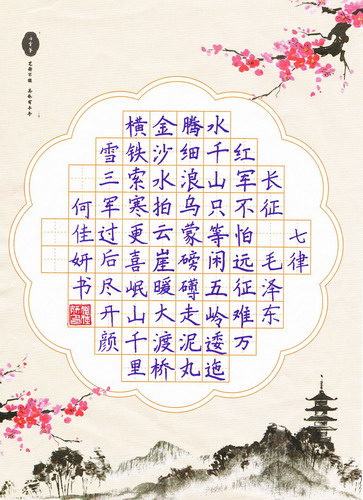 七律
长征 毛泽东
红军不怕远征难万
水千山只等闲五岭逶迤
腾细浪乌蒙磅礴走泥丸
金沙水拍云崖暖大渡桥
横铁索寒更喜岷山千里
雪三军过后尽开颜
何佳妍书